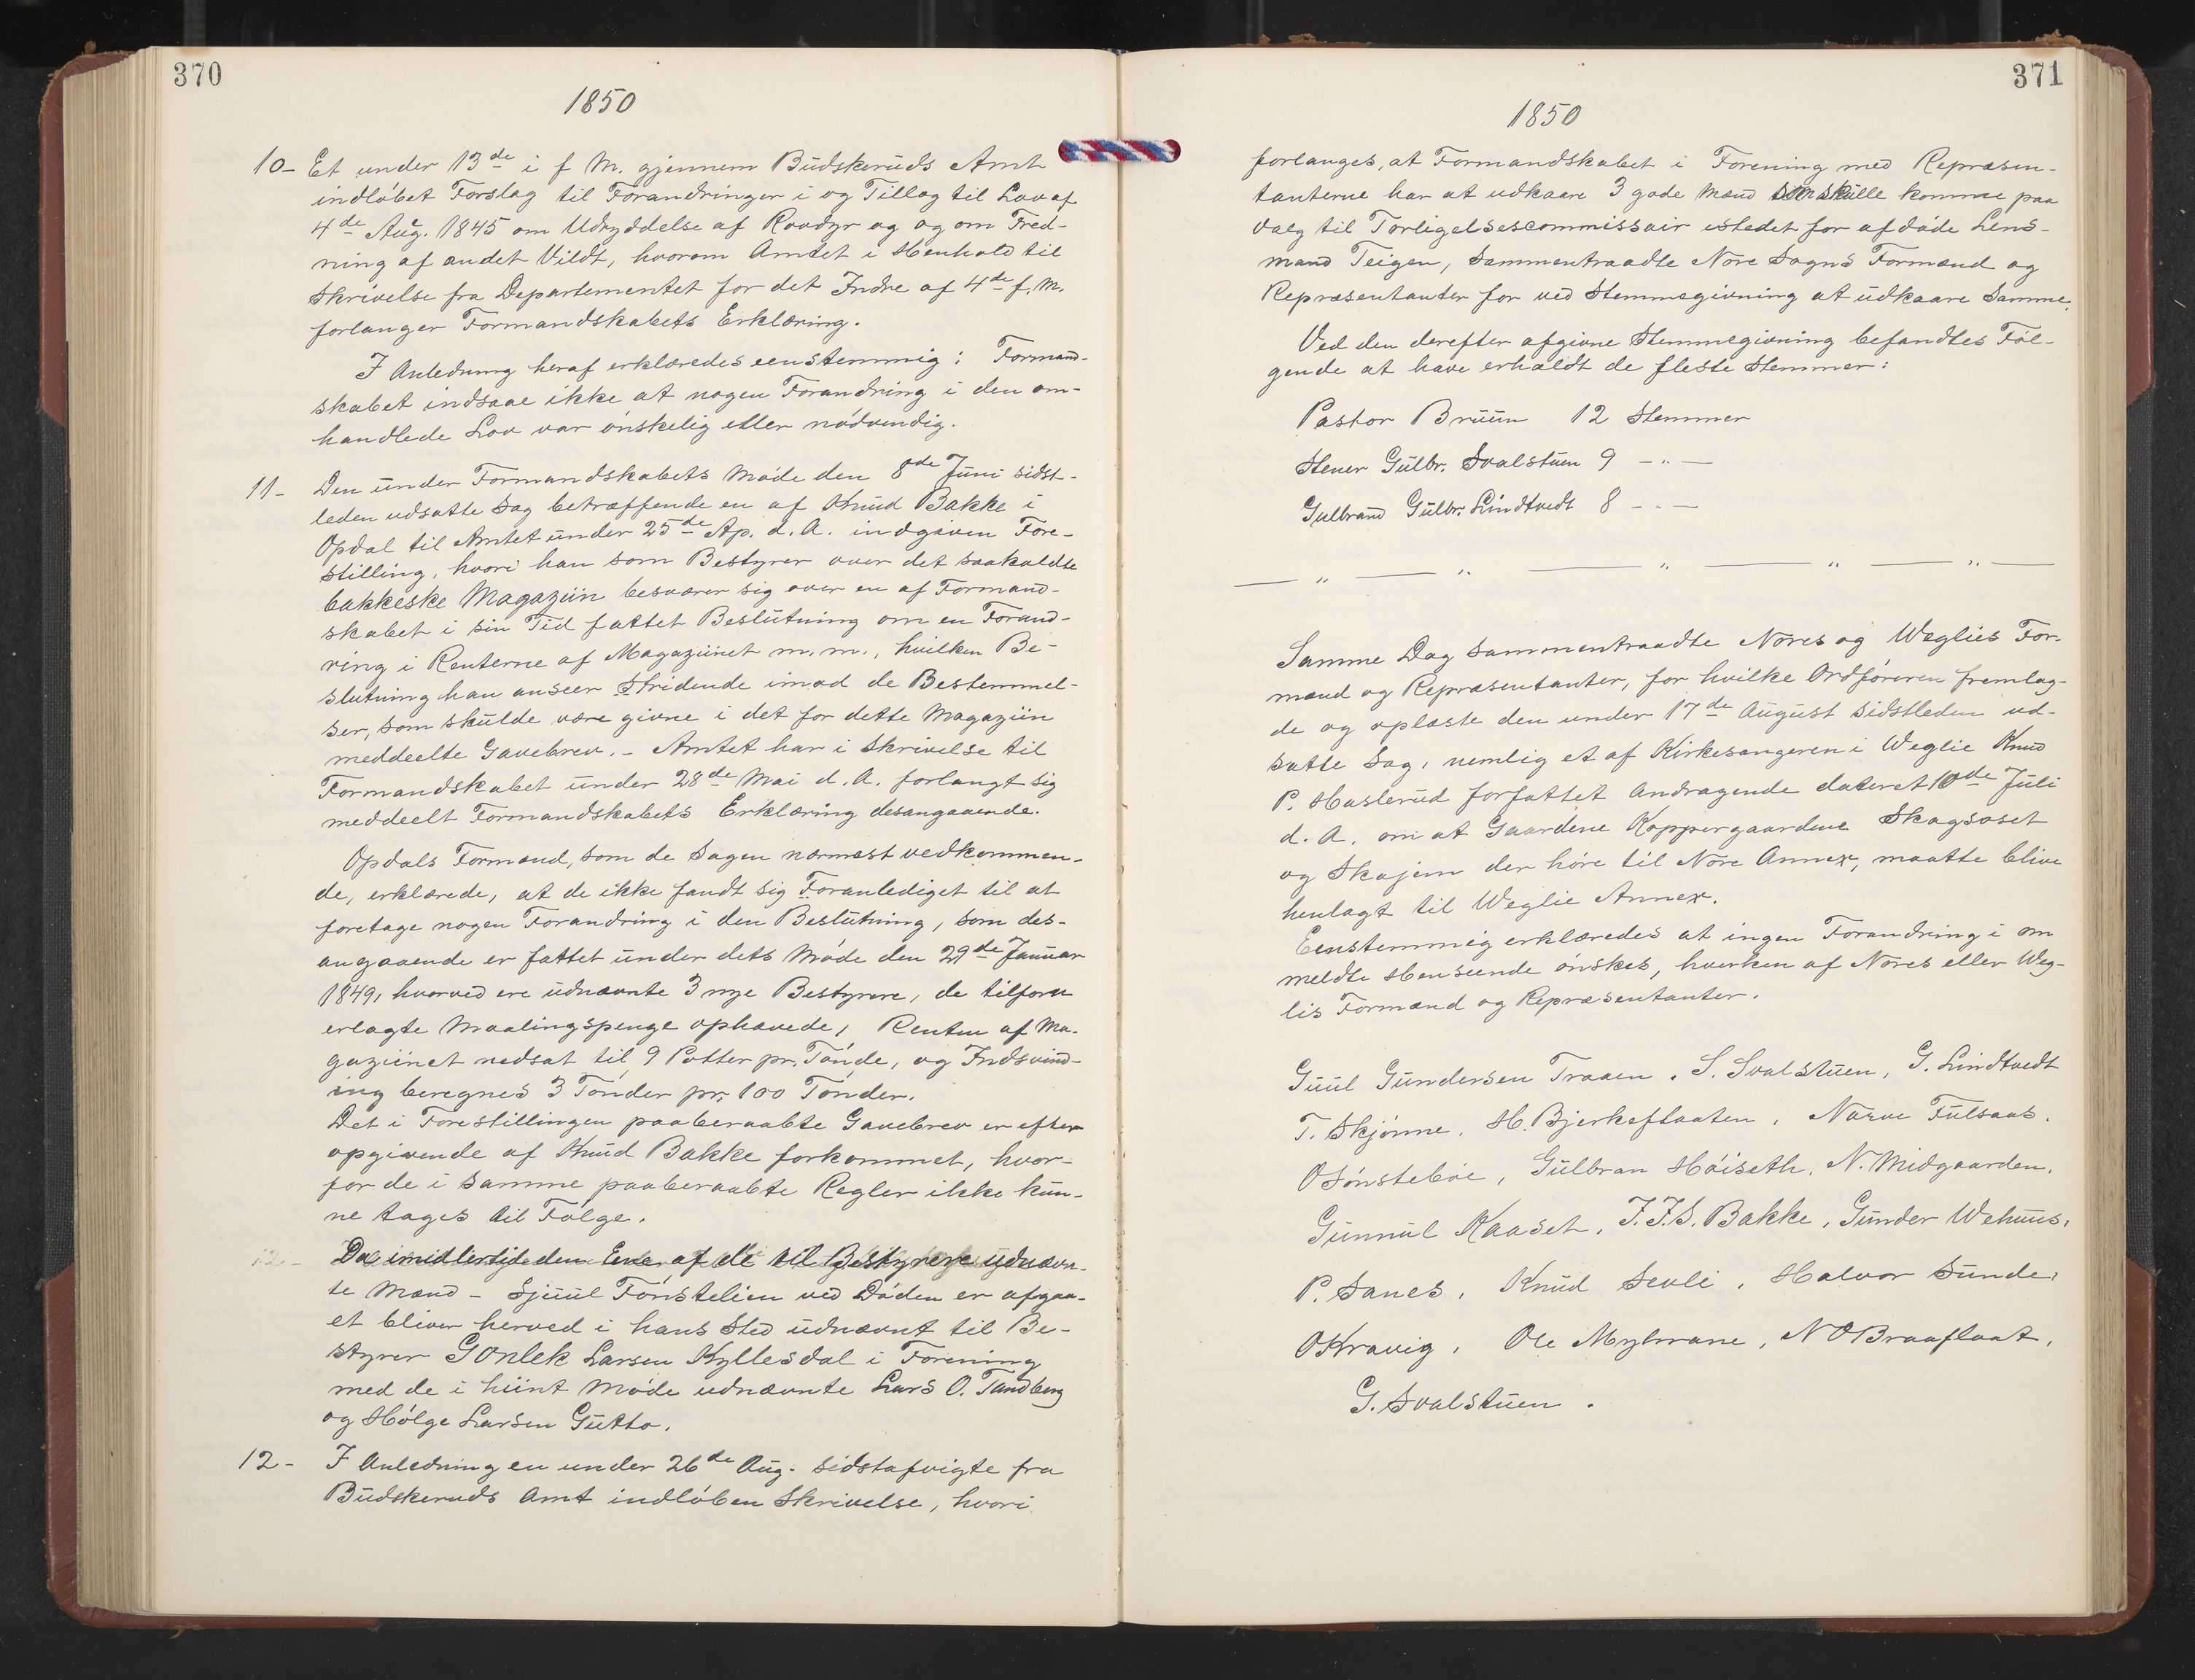 370
1850
10- Et under 13de i f M. gjennem Budskeruds Amt
indløbet Forslag til Forandringer i og Tillæg til Lov af
4de Aug. 1845 om Udryddelse af Rovdyr og og om Fred-
ning af andet Vildt, hvorom Amtet i Henhold til
Skrivelse fra Departementet for det Indre af 4de f. M.
forlanger Formandskabets Erklæring.
I Anledning heraf erklæredes eenstemmig: Formand-
skabet indsaae ikke at nogen Forandring i den om-
handlede Lov var ønskelig eller nødvendig.
11- Den under Formandskabets Møde den 8de Juni sidst-
leden udsatte Sag betræffende en af Knud Bakke i
Opdal til Amtet under 25de Ap. d. A. indgiven Fore-
stilling, hvori han som Bestyrer over det saakaldte
bakkeske Magaziin besværer sig over en af Formand-
skabet i sin Tid fattet Beslutning om en Forand-
ring i Renterne af Magaziinet m. m., hvilken Be-
slutning han anseer stridende imod de Bestemmel-
ser, som skulde være givne i det for dette Magaziin
meddeelte Gavebrev. - Amtet har i skrivelse til
Formandskabet under 28de Mai d. A. forlangt sig
meddeelt Formandskabets Erklæring desangaaende.
Opdals Formænd, som de Sagen nærmest vedkommen-
de, erklærede, at de ikke fandt sig Foranlediget til at
foretage nogen Forandring i den Beslutning, som des-
angaaende er fattet under dets Møde den 29de Januar
1849, hvorved ere udnævnte 3 nye Bestyrere, de tilforn
erlagte Maalingspenge ophævede, Renten af Ma-
gaziinet nedsat til 9 Potter pr. Tønde, og Indsvind-
ing beregnes 3 Tønder pr. 100 Tønder.
Det i Forestillingen paaberaabte Gavebrev er efter
opgivende af Knud Bakke forkommet, hvor-
for de i samme paaberaabte Regler ikke kun-
ne tages til Følge.
12- Da imidlertid den Ene af de til Bestyrere udnævn-
te Mænd - Sjuul Fønstelien ved Døden er afgaa-
et bliver herved i hans Sted udnævnt til Be-
styrer Gonlek Larsen Kyllesdal i Forening
med de i hiint Møde udnævnte Lars O. Tandberg
og Hølge Larsen Gutto.
12- I Anledning en under 26de Aug. sidstafvigte fra
Budskeruds Amt indløben Skrivelse, hvori
371
1850
forlanges, at Formandskabet i Forening med Repræsen-
tanterne har at udkaare 3 gode Mænd som skulle komme paa
Valg til Forligelsescommissair istedet for afdøde Lens-
mand Teigen, sammentraadte Nore Sogns Formænd og
Repræsentanter for ved Stemmegivning at udkaare Samme.
Ved den derefter afgivne Stemmegivning befandtes Føl-
gende at have erholdt de fleste Stemmer:
Pastor Bruun 12 Stemmer
Stener Gulbr. Svalstuen 9 - " -
Gulbrand Gulbr. Lindtvedt 8 - " -
— " — " — " — " — " —
Samme Dag sammentraadte Nores og Weglies For-
mænd og Repræsentanter, for hvilke Ordføreren fremlag-
de og oplæste den under 17de August sidstleden ud-
satte Sag, nemlig et af Kirkesangeren i Weglie Knud
P. Haslerud forfattet Andragende dateret 10de Juli
d. A. om at Gaardene Koppergaardene Skagsoset
og Skajem der høre til Nore Annex, maatte blive
henlagt til Weglie Annex.
Eenstemmig erklæredes at ingen Forandring i om
meldte Henseende ønskes, hverken af Nores eller Weg-
lis Formænd og Repræsentanter.
Guul Gundersen Traaen. S. Svalstuen, G. Lindtvedt
T. Skjønne. H. Bjerkeflaaten, Narve Fulsaas.
O Sønstebøe, Gulbran Høiseth. N. Midgaarden.
Gunnul Kaaset, J. J. S. Bakke, Gunder Wehuus,
P. Sanes, Knud Sevli, Halvor Sunde,
O Kravig, Ole Myhrane, N O Braaflaat,
G. Svalstuen.